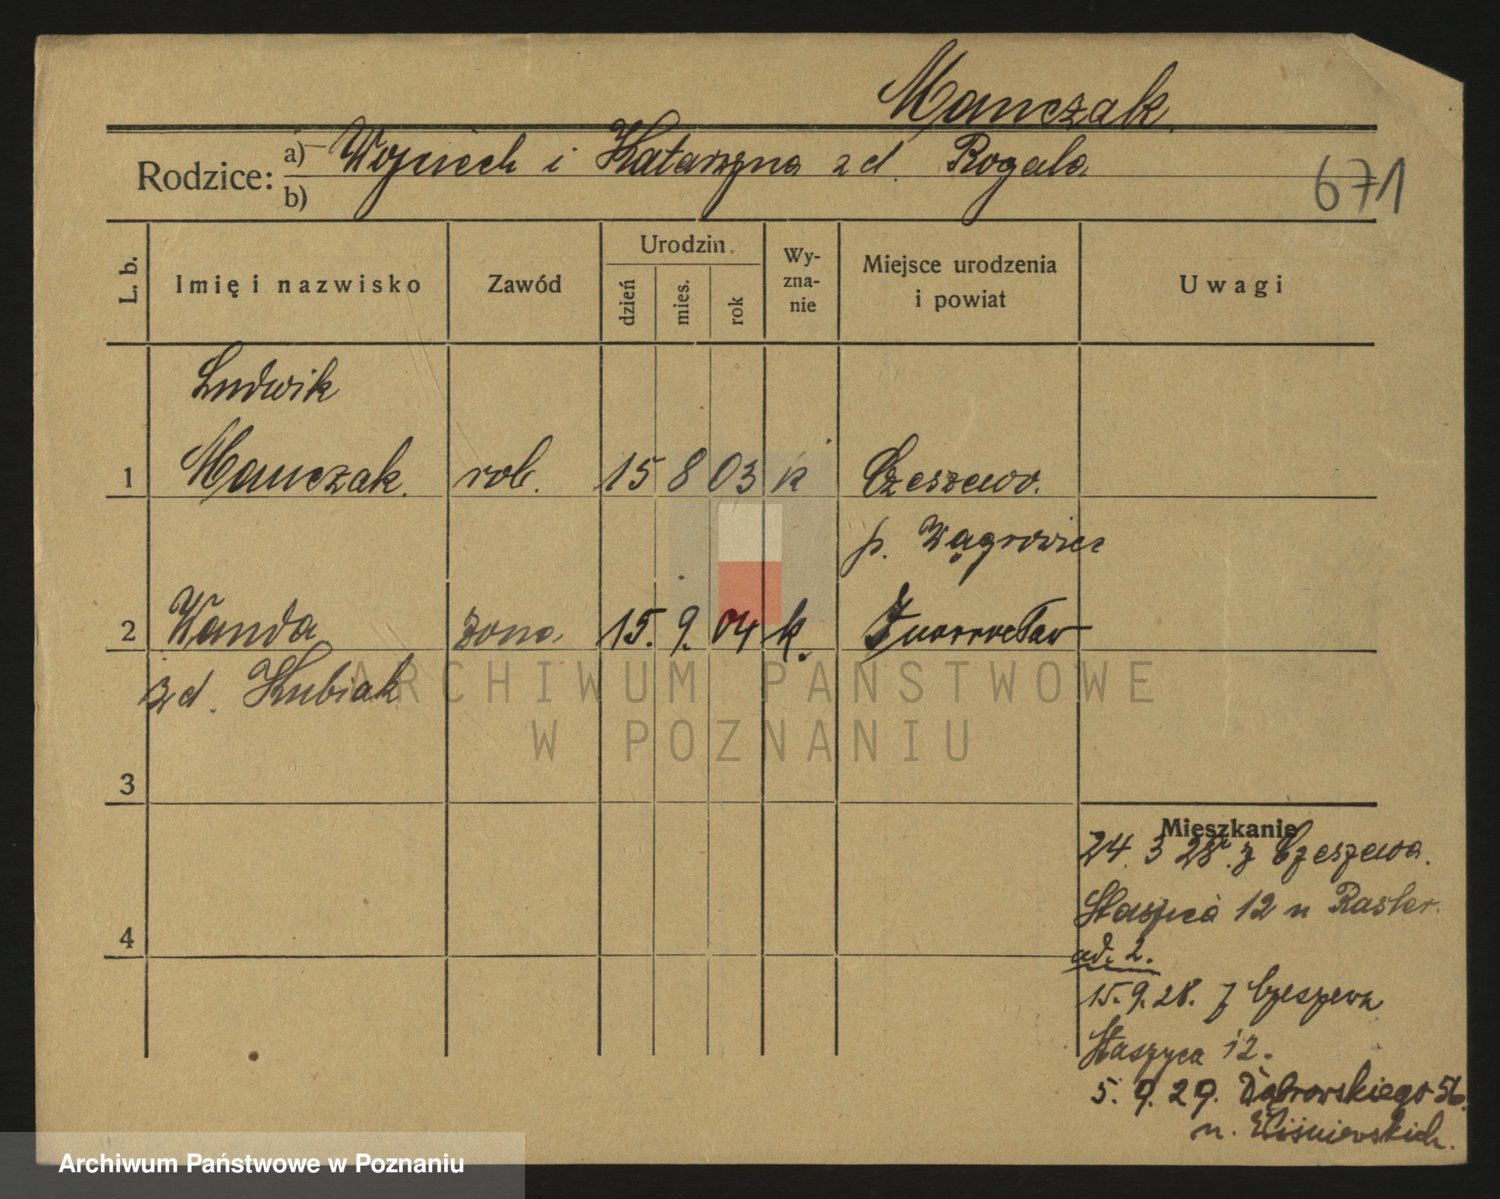 Manczak.
Rodzice: a) Wojciech i Katarzyna zd. Rogala
b)
671
L. b.
Imię i nazwisko
Zawód
Urodzin.
dzień
mies.
rok
Wy-
zna-
nie
Miejsce urodzenia
i powiat
Uwagi
Ludwik
1 Manczak. rob. 15 8 03 k Czeszewo.
p. Wągrowiec
2 Wanda żona 15. 9. 04 k. Inowrocław
zd. Kubiak
3
4
Mieszkanie
24. 3 28 r. z Czeszewa.
Staszica 12 u Raster.
ad. 2.
15. 9. 28. z Czeszewa
Staszyca 12.
5. 9. 29. Dąbrowskiego 56.
u. Wiśniewskich.
ARCHIWUM PAŃSTWOWE
W POZNANIU
Archiwum Państwowe w Poznaniu